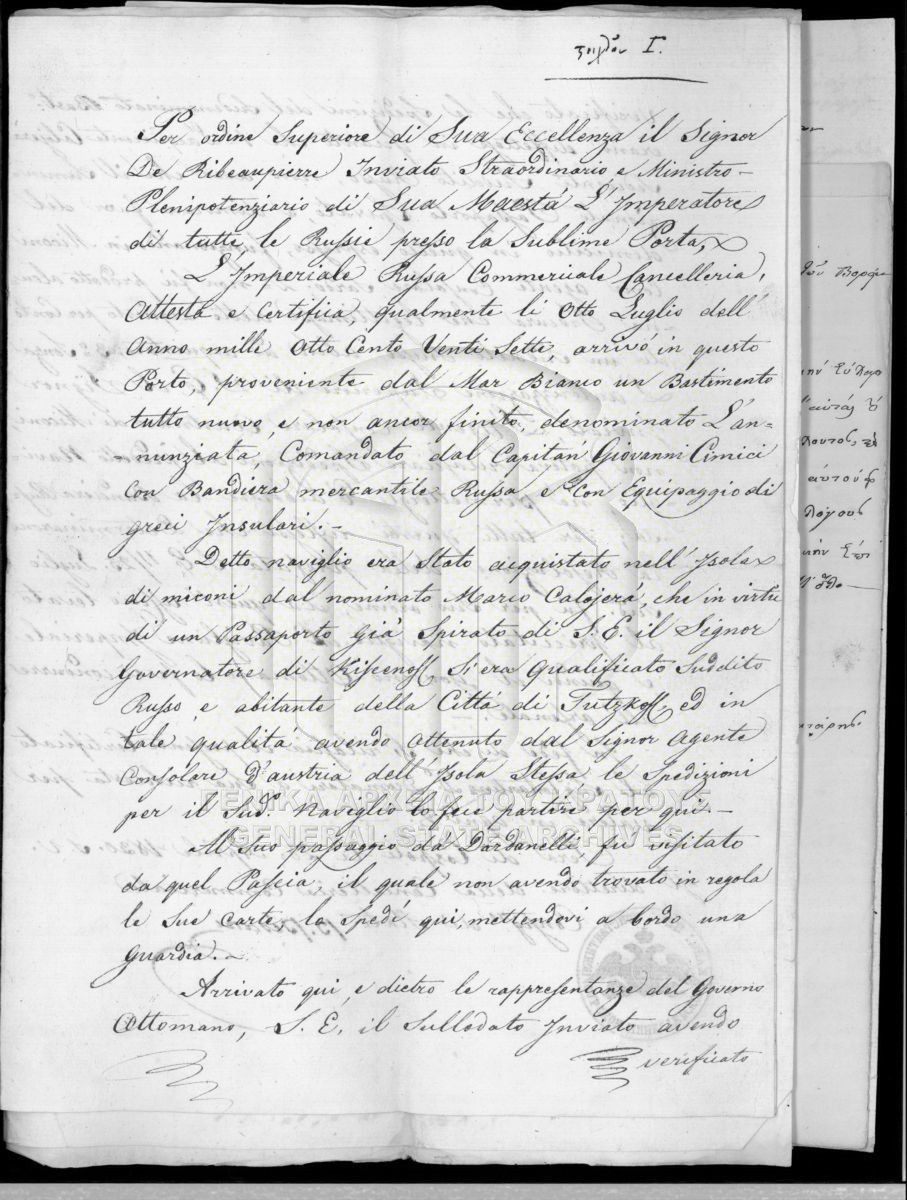 Γ.
Per ordine Superiore di Sua Eccellenza il Signor
De Ribeaupierre Inviato Straordinario e Ministro-
Plenipotenziario di Sua Maestá L'Imperatore
di tutte, le Russie presso la Sublime Porta,
L'Imperiale Russa Commerciale Cancelleria,
Attesta e Certifica, qualmente li Otto Luglio dell'
Anno mille Otto Cento Venti Sette, arrivó in questo
Porto, proveniente dal Mar Bianco un Bastimento
tutto nuovo, e non ancor finito, denominato L'an-
-nunziata, Comandato dal Capitan Giovanni Cimici
Con Bandiera mercantile Russa e con Equipaggio di
greci Insulari.-
Detto naviglio era Stato acquistato nell'Isola
di miconi dal nominato Marco Calojerá, che in virtú
di un Passaporto giá Spirato di S. E. il Signor
Governatore di Kisceneff, S'era qualificato Suddito
Russo e abitante della Cittá di Tutzkoff, ed in
tale qualitá avendo ottenuto dal Signor Agente
Consolare d'austria dell'Isola Stessa le Spedizioni
per il Sudo. Naviglio lo fece partire per qui.-
Al Suo passaggio da' Dardanelli, fu visitato
da quel Pascia, il quale non avendo trovato in regola
le Sue Carte, lo Spedí qui, mettendovi a bordo una
Guardia.-
Arrivato qui, e dietro le rappresentanze del Governo
Ottomano, S. E. il Sullodato Inviato avendo
verificato
ΓΕΝΙΚΑ ΑΡΧΕΙΑ ΤΟΥ ΚΡΑΤΟΥΣ
GENERAL STATE ARCHIVES